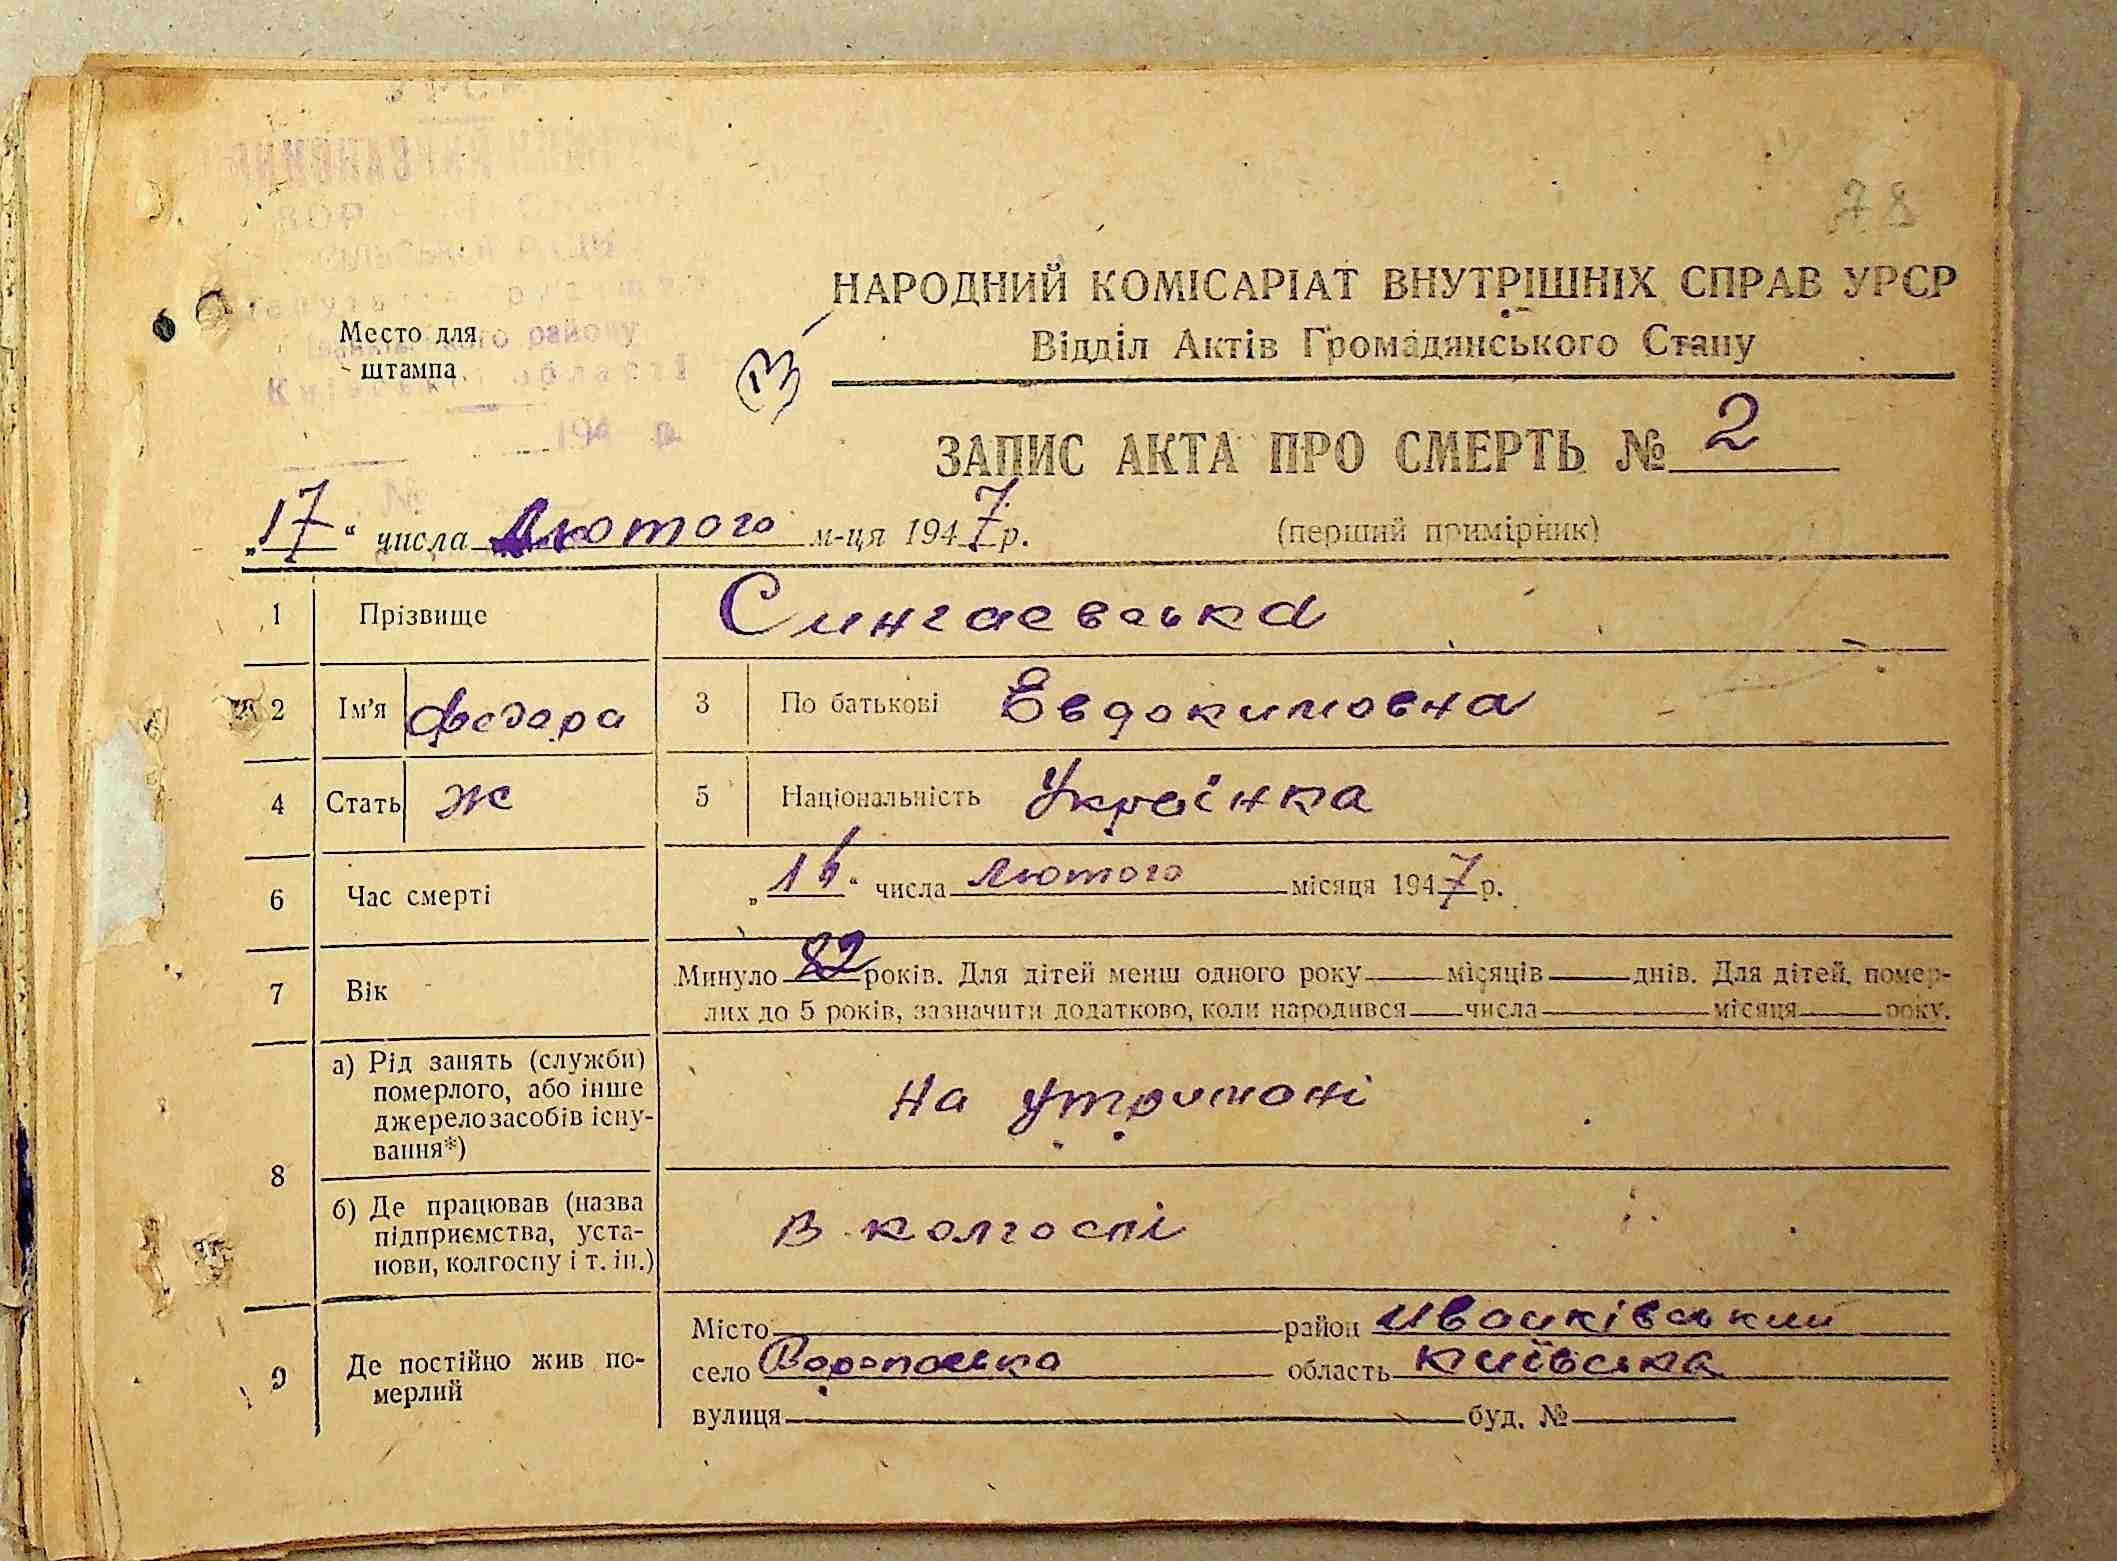 78
НАРОДНИЙ КОМІСАРІАТ ВНУТРІШНІХ СПРАВ УРСР
Відділ Актів Громадянського Стану
Место для
штампа
сільської ради
району
Київської області
194 р.
№
ЗАПИС АКТА ПРО СМЕРТЬ № 2
„17“ числа Лютого м-ця 1947 р.
(перший примірник)
1 Прізвище Сингаевська
2 Ім'я Федора 3 По батькові Евдокимовна
4 Стать Ж 5 Національність Українка
6 Час смерті „16“ числа лютого місяця 1947 р.
7 Вік Минуло 82 років. Для дітей менш одного року місяців днів. Для дітей, помер-
лих до 5 років, зазначити додатково, коли народився числа місяця року.
8 а) Рід занять (служби)
померлого, або інше
джерело засобів існу-
вання*)
На утримані
б) Де працював (назва
підприємства, уста-
нови, колгоспу і т. ін.)
в колгоспі
9 Де постійно жив по-
мерлий
Місто район Иванківський
село Воропаевка область Київська
вулиця буд. №